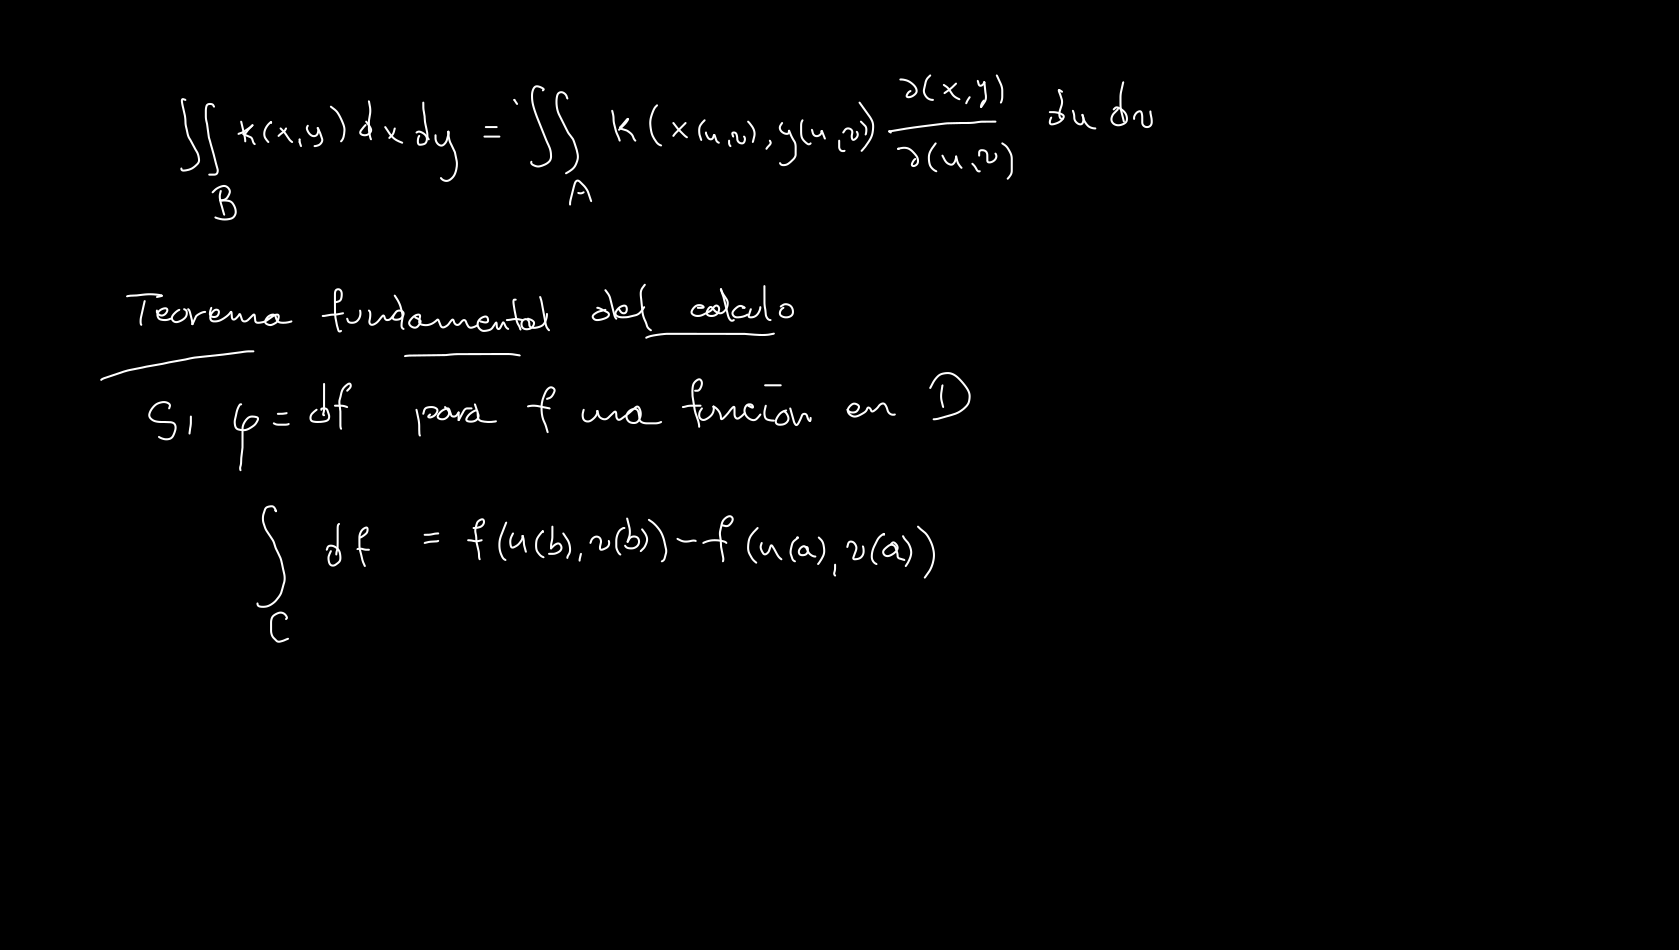 ∬_B k(x,y) dx dy = ∬_A k(x(u,v), y(u,v)) ∂(x,y)/∂(u,v) du dv
Teorema fundamental del calculo
Si φ = df para f una función en D
∫_C df = f(u(b), v(b)) - f(u(a), v(a))